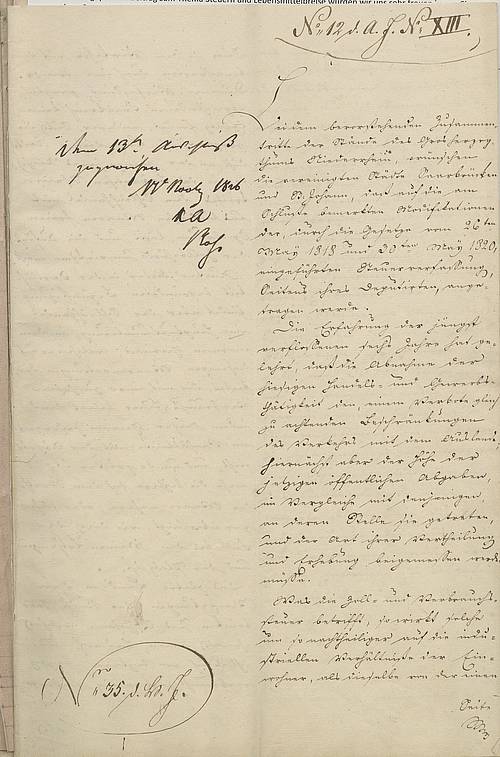 No. 12 d. A. J. No. XIII.
dem 13ten Ausschuß
zugewiesen
Bei dem bevorstehenden Zusammen-
tritte der Stände des Großherzog-
thums Niederrhein wünschen
die vereinigten Städte Saarbrücken
und St. Johann, daß auf die am
Schluße bemerkten Modifikationen
der, durch die Gesetze vom 26ten
May 1818 und 30ten May 1820,
eingeführten Steuerverfassung,
Seitens ihres Deputirten, ange-
tragen werde.
Die Erfahrung der jüngst
verflossenen sechs Jahre hat ge-
lehrt, daß die Abnahme der
hiesigen Handels- und Gewerbs-
thätigkeit den, einem Verbote gleich
zu achtenden Beschränkungen
des Verkehrs mit dem Auslande,
hiernächst aber der Höhe der
jetzigen öffentlichen Abgaben,
im Vergleiche mit denjenigen,
an deren Stelle sie getreten,
und der Art ihrer Vertheilung
und Erhebung beigemessen werden
müsse.
Was die Zoll- und Verbrauchs-
steuer betrifft, so wirkt solche
um so nachtheiliger auf die indu-
striellen Verhältnisse der Ein-
wohner, als dieselbe von der einen
Seite
No. 35. d. L. J.